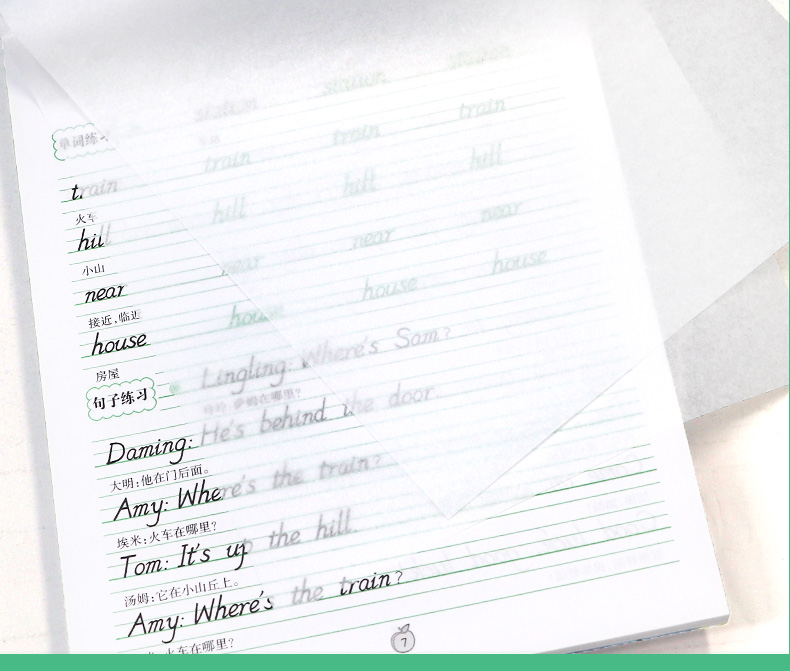 单词练
train train train train
火车
hill hill hill hill
小山
near near near near
接近,临近
house house house house
房屋
句子练习
Lingling: Where's Sam?
在哪里?
Daming: He's behind the door.
大明:他在门后面。
Amy: Where's the train?
埃米:火车在哪里?
Tom: It's up the hill.
汤姆:它在小山丘上。
Amy: Where's the train?
火车在哪里?
7